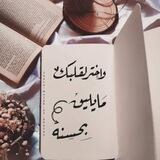 واختر لقلبك
ما يليق
بحسنه